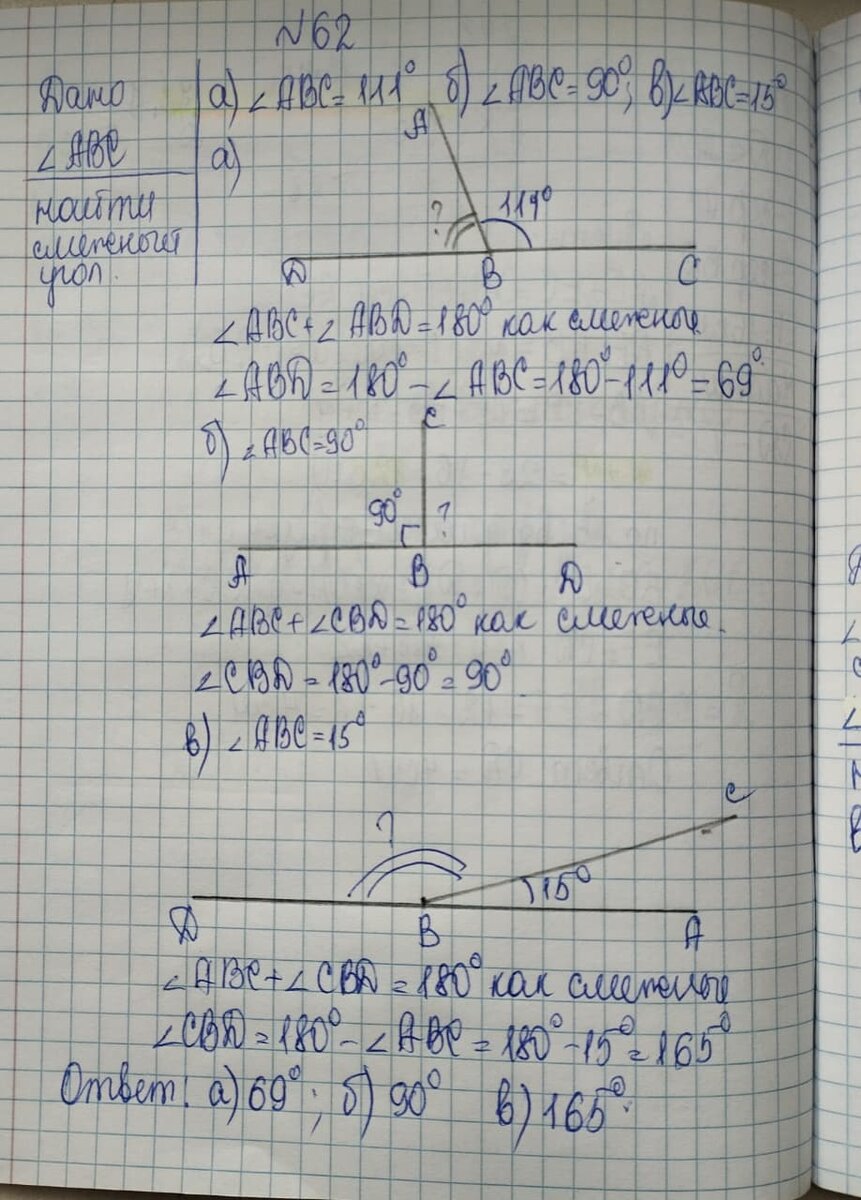 №62
Дано
∠ABC
найти
смежный
угол.
а) ∠ABC = 111° б) ∠ABC = 90°; в) ∠ABC = 15°
а)
A
? 111°
D B C
∠ABC + ∠ABD = 180° как смежные
∠ABD = 180° - ∠ABC = 180° - 111° = 69°
б) ∠ABC = 90°
C
90° ?
A B D
∠ABC + ∠CBD = 180° как смежные.
∠CBD = 180° - 90° = 90°
в) ∠ABC = 15°
C
?
15°
D B A
∠ABC + ∠CBD = 180° как смежные
∠CBD = 180° - ∠ABC = 180° - 15° = 165°
Ответ: а) 69°; б) 90° в) 165°.